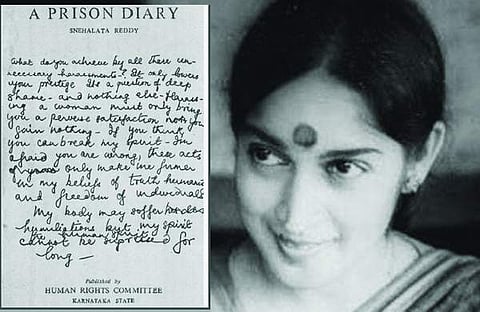 A PRISON DIARY
SNEHALATA REDDY
What do you achieve by all these un-
necessary harassments? It only lowers
your prestige. Its a question of deep
shame - and nothing else - Harass-
ing a woman must only bring
you a perverse satisfaction
gain nothing - If you think
you can break my spirit - Im
afraid you are wrong, these acts
only make me firmer
in my beliefs of truth
and freedom of individuals
My body may suffer
humiliations but my spirit
human spirit
cannot be for
long —
Published by
HUMAN RIGHTS COMMITTEE
KARNATAKA STATE